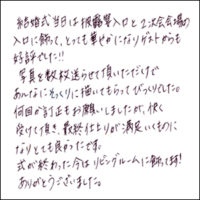 結婚式当日は披露宴入口と2次会会場の
入口に飾って、とっても華やかになりゲストからも
好評でした!!
写真を数枚送らせて頂いただけで
あんなにそっくりに描いてもらってびっくりでした。
何回か訂正もお願いしましたが、快く
受けて頂き、最終仕上りが満足いくものに
なりとても良かったです。
式が終わった今はリビングルームに飾ってます!
ありがとうございました。